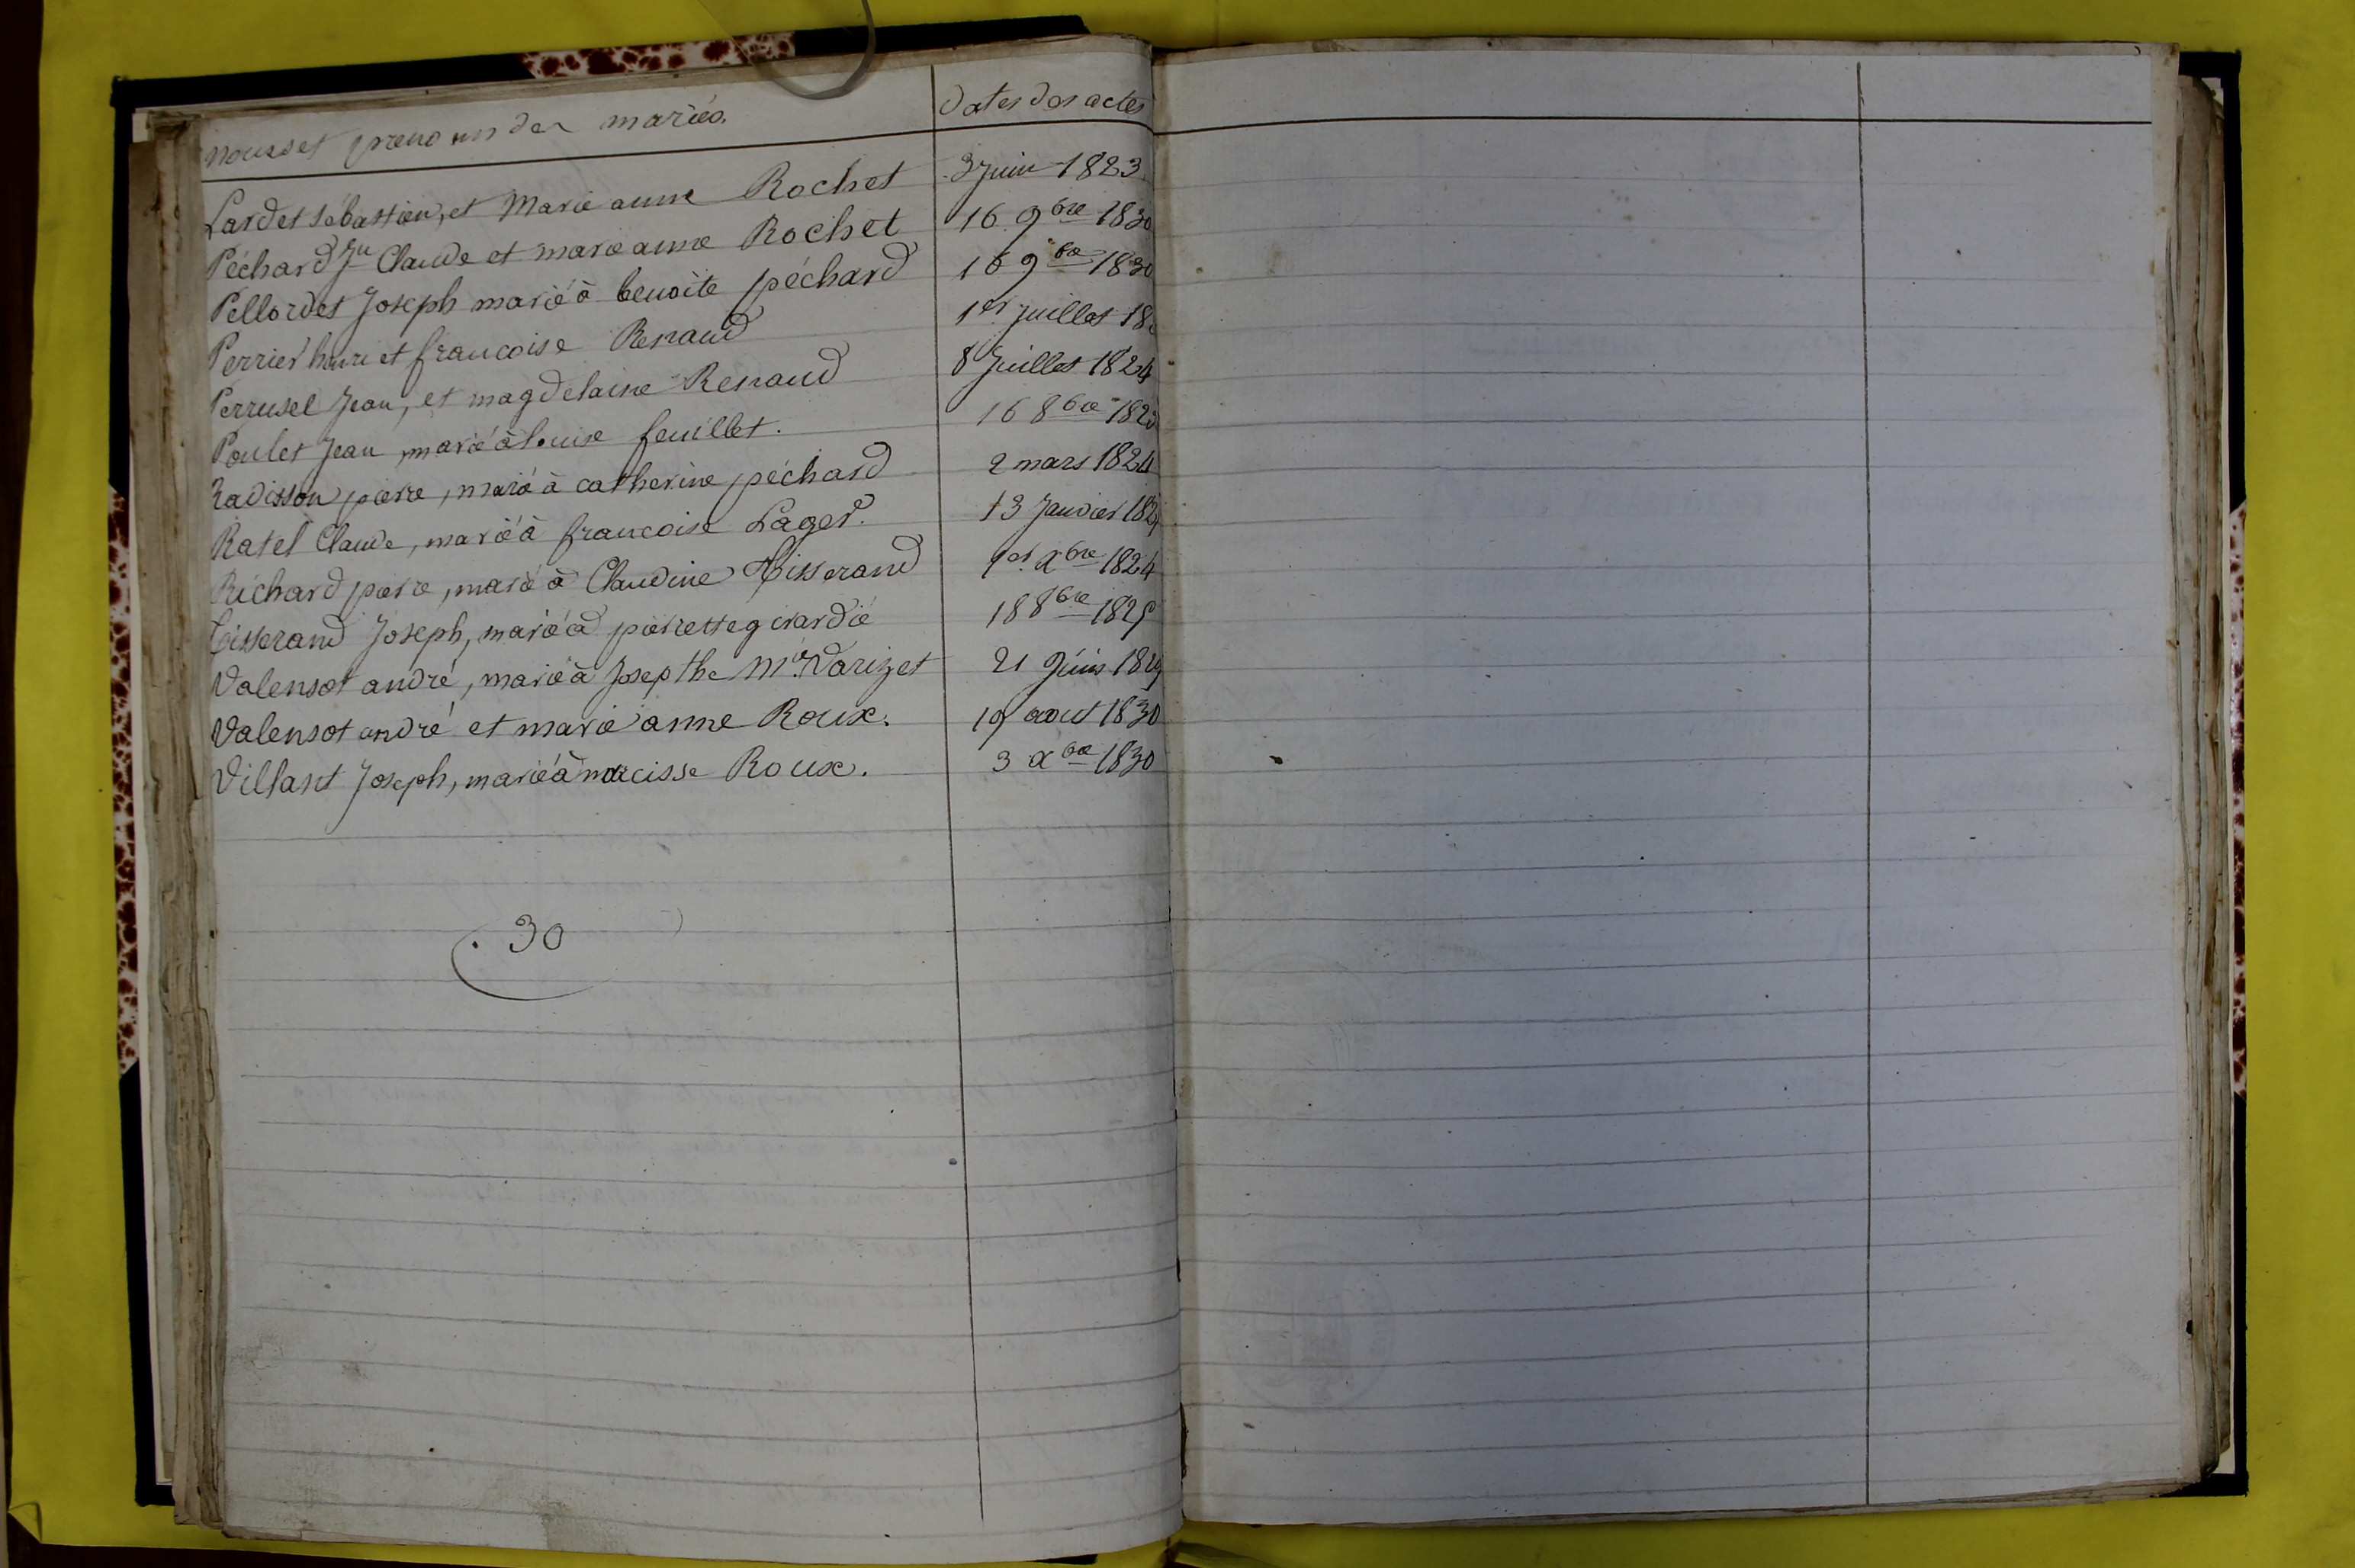 noms et prenoms des mariés. Dates des actes
Lardet sébastien, et Marie anne Rochet 3 Juin 1823
Péchard Jn Claude et marie anne Rochet 16 9bre 1830
Pellordet Joseph marié à benoite péchard 16 9bre 1830
Perrier henri et francoise Renaud 1er juillet
Perrusel Jean, et magdelaine Renaud 8 Juillet 1824
Poulet Jean, marié à louise feuillet. 16 8bre
Radisson pierre, marié à catherine péchard 2 mars 1824
Ratel Claude, marié à francoise Lager. 13 Janvier
Richard pierre, marié à Claudine Tisserand 1er Xbre 1824
Tisserand Joseph, marié à pierrette girardié 18 8bre 1825
Valensot andré, marié à Josepthe Mie Varizet 21 Juin
Valensot andré et marie anne Roux. 19 aout 1830
Villant Joseph, marié à narcisse Roux. 3 Xbre 1830
30